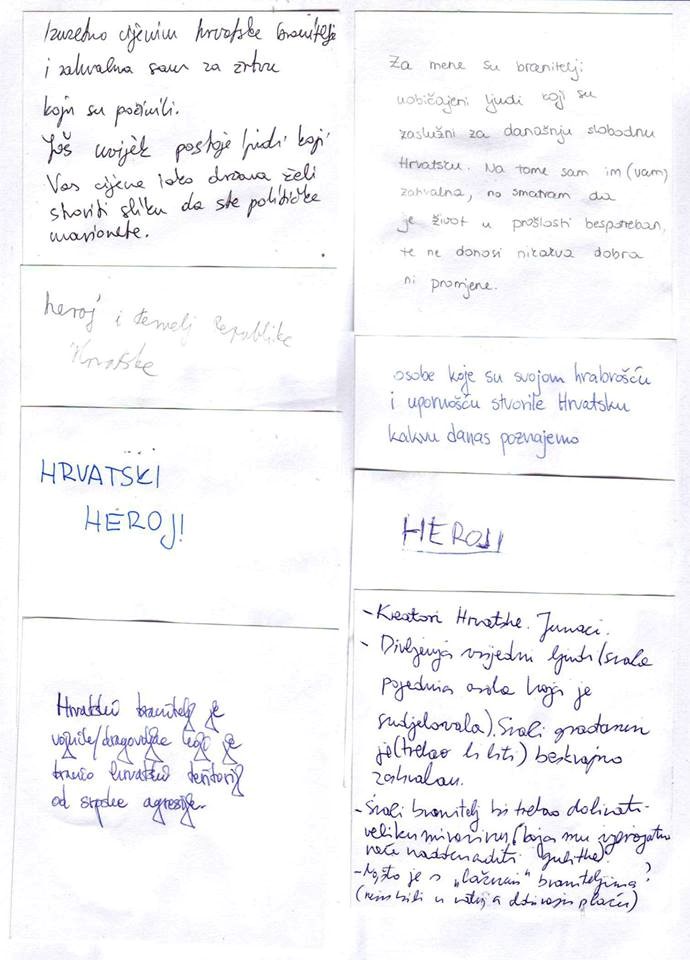 Izuzetno cijenim hrvatske branitelje
i zahvalna sam za žrtvu
koju su počinili.
Još uvijek postoje ljudi koji
Vas cijene iako država želi
stvoriti sliku da ste političke
marionete.
heroj i temelj Republike
Hrvatske
HRVATSKI
HEROJ!
Hrvatski branitelj je
vojnik/dragovoljac koji je
branio hrvatski teritorij
od srpske agresije.
Za mene su branitelji
uobičajeni ljudi koji su
zaslužni za današnju slobodnu
Hrvatsku. Na tome sam im (vam)
zahvalna, no smatram da
je život u prošlosti bespotreban,
te ne donosi nikakva dobra
ni promjene.
osobe koje su svojom hrabrošću
i upornošću stvorile Hrvatsku
kakvu danas poznajemo
HEROJI
- Kreatori Hrvatske. Junaci.
- Divljenja vrijedni ljudi (svaka
pojedina osoba koja je
sudjelovala). Svaki građanin
je (trebao bi biti) beskrajno
zahvalan.
- Svaki branitelj bi trebao dobivati
veliku mirovinu (koja mu vjerojatno
neće nadoknaditi gubitke.
- No, što je s „lažnim" braniteljima?
(nisu bili u ratu, a dobivaju plaću)